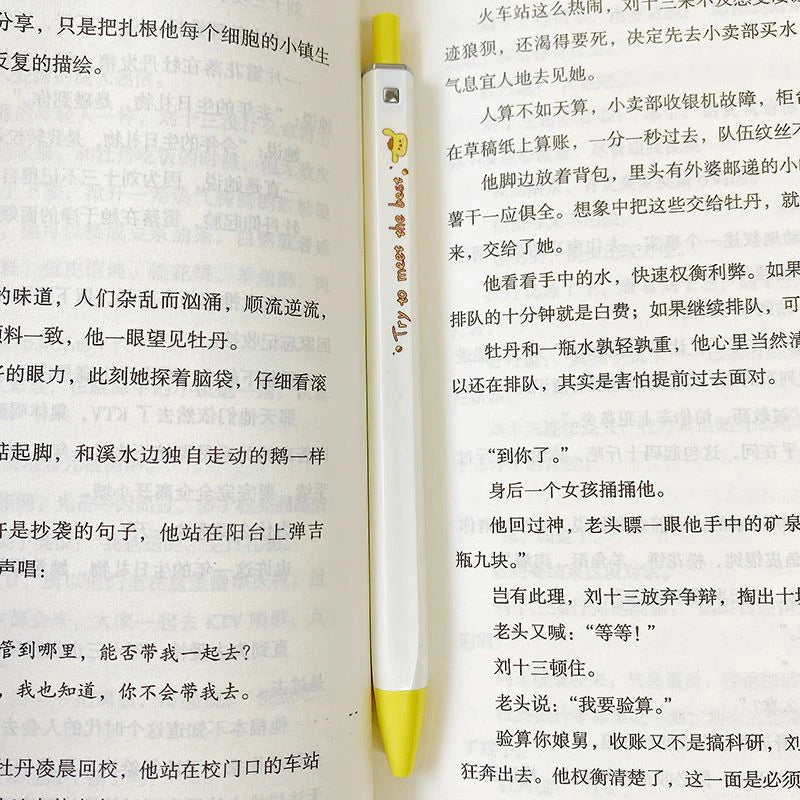 分享，只是把扎根他每个细胞的小镇生
反复的描绘。
的味道，人们杂乱而汹涌，顺流逆流，
颜料一致，他一眼望见牡丹。
的眼力，此刻她探着脑袋，仔细看滚
站起脚，和溪水边独自走动的鹅一样
是抄袭的句子，他站在阳台上弹吉
声唱：
管到哪里，能否带我一起去？
，我也知道，你不会带我去。
牡丹凌晨回校，他站在校门口的车站
Try to meet the best
火车站这么热闹，刘十三
迹狼狈，还渴得要死，决定先去小卖部买水
气息宜人地去见她。
人算不如天算，小卖部收银机故障，柜台
在草稿纸上算账，一分一秒过去，队伍纹丝不
他脚边放着背包，里头有外婆邮递的小
薯干一应俱全。想象中把这些交给牡丹，就
来，交给了她。
他看看手中的水，快速权衡利弊。如果
排队的十分钟就是白费；如果继续排队，可
牡丹和一瓶水孰轻孰重，他心里当然清
以还在排队，其实是害怕提前过去面对。
“到你了。”
身后一个女孩捅捅他。
他回过神，老头瞟一眼他手中的矿泉
瓶九块。”
岂有此理，刘十三放弃争辩，掏出十块
老头又喊：“等等！”
刘十三顿住。
老头说：“我要验算。”
验算你娘舅，收账又不是搞科研，刘
狂奔出去。他权衡清楚了，这一面是必须